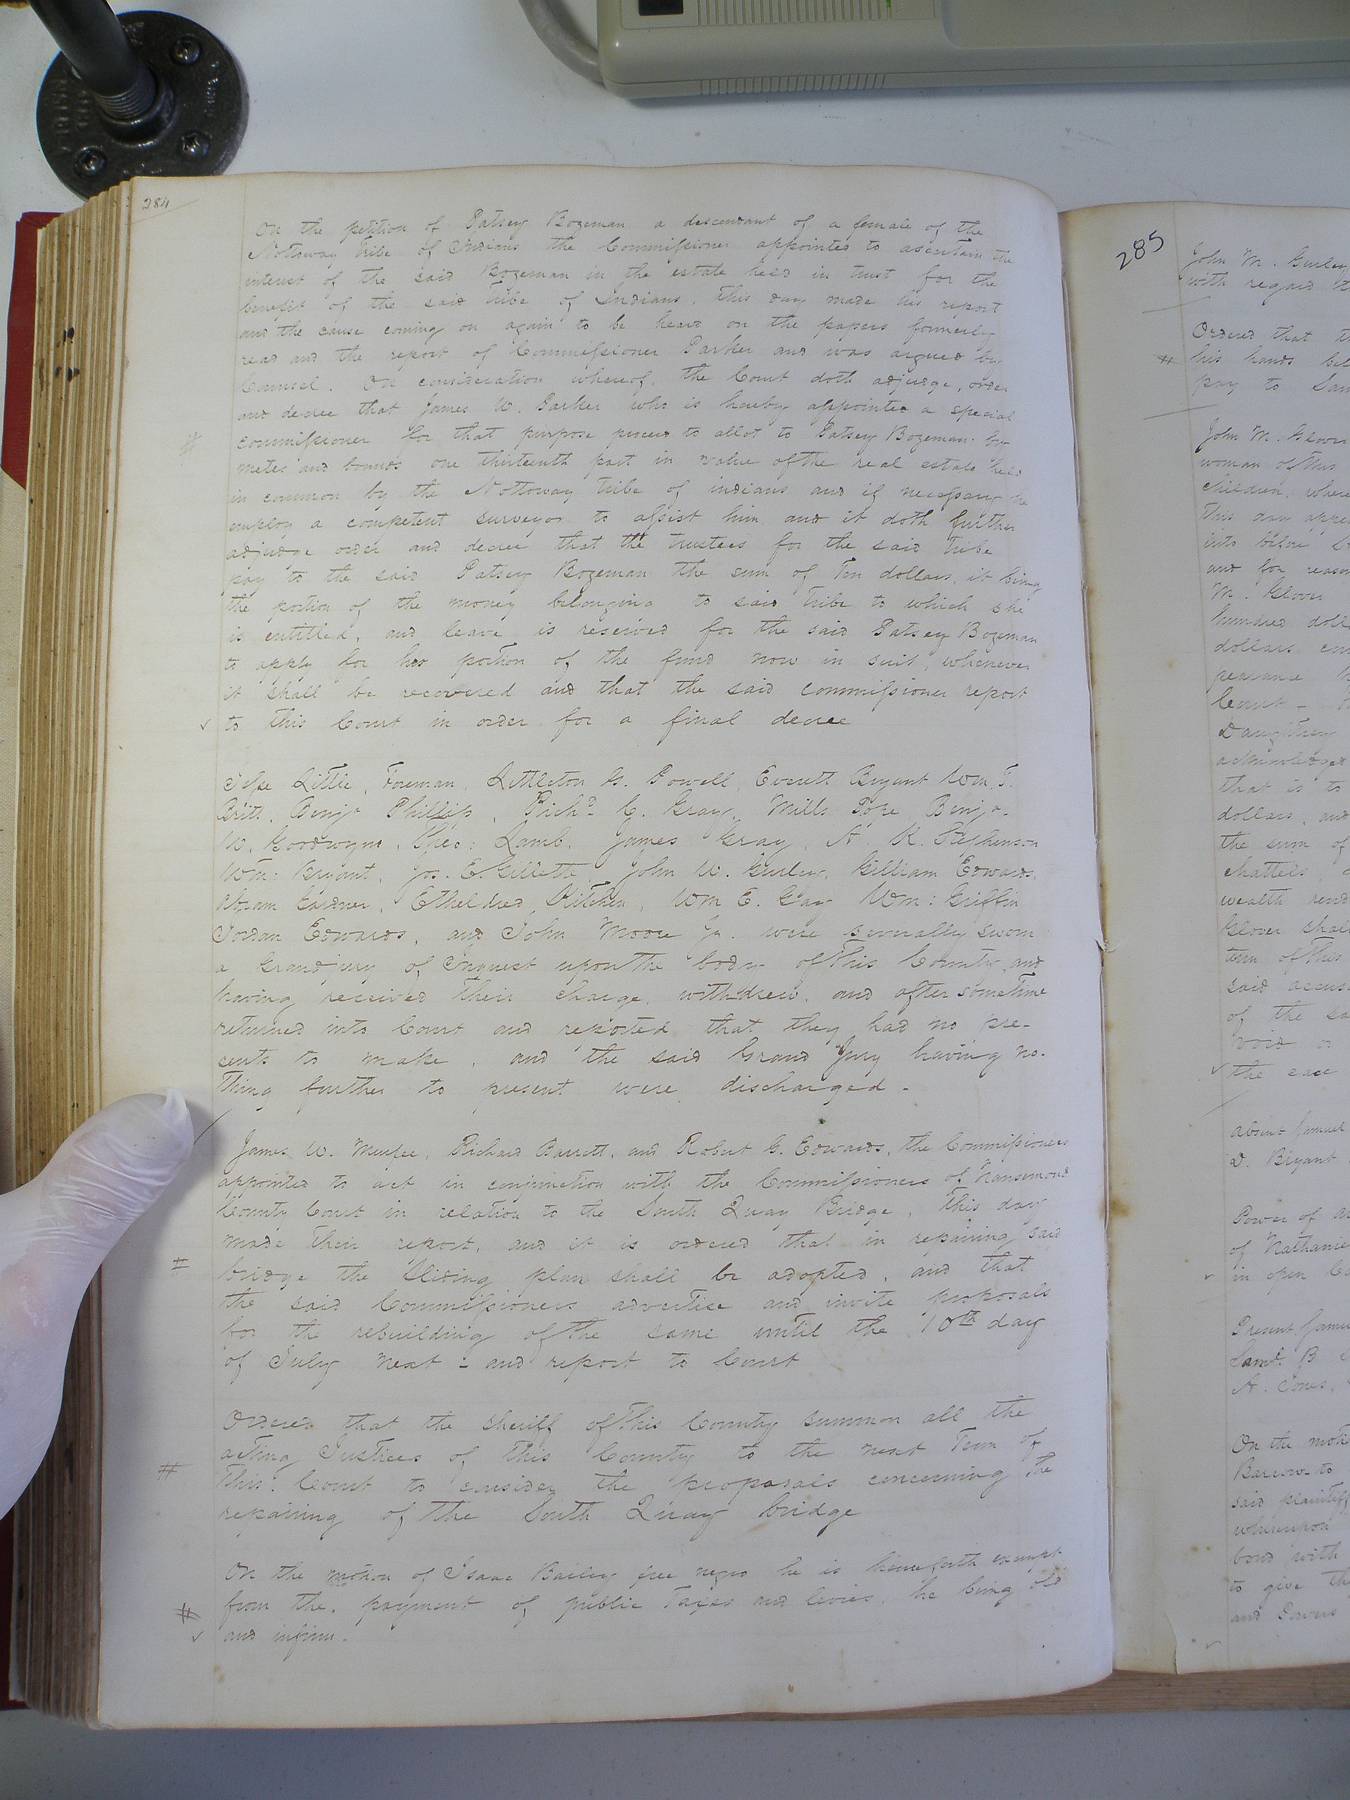 284
On the petition of Patsey Bozeman a descendant of a female of the
Nottoway tribe of Indians the Commissioner appointed to ascertain the
interest of the said Bozeman in the estate held in trust for the
benefit of the said tribe of Indians, this day made his report
and the cause coming on again to be heard on the papers formerly
read and the report of Commissioner Parker and was argued by
Counsel. On consideration whereof, the Court doth adjudge, order
and decree that James W. Parker who is hereby appointed a special
# commissioner for that purpose proceed to allot to Patsey Bozeman by
metes and bounds one thirteenth part in value of the real estate held
in common by the Nottoway tribe of indians and if necessary he
employ a competent surveyor to assist him and it doth further
adjudge order and decree that the trustees for the said tribe
pay to the said Patsey Bozeman the sum of Ten dollars, it being
the portion of the money belonging to said tribe to which she
is entitled, and leave is reserved for the said Patsey Bozeman
to apply for her portion of the fund now in suit, whenever
it shall be recovered and that the said commissioner report
to this Court in order for a final decree
Little, Foreman, Littleton Powell, Everett Bryant Wm. T.
Britt, Benj. Phillips, Richd. C. Gray, Mills Pope Benja.
W. Goodwyn, Lamb, James Gray, A. K. Stephenson
Wm: Bryant, Jos. E. Gillette, John W. Gurley, William Edwards,
Abram Ethelred Kitchen, Wm E. Gay Wm: Griffin
Jordan Edwards, and John Moore Jr. were severally sworn
a Grandjury of Inquest upon the body of this County and
having received their charge, withdrew, and after sometime
returned into Court and reported that they had no pre-
sents to make, and the said Grand Jury having no-
thing further to present were discharged.
James W. Murfee, Richard Barrett, and Robert G. Edwards, the Commissioners
appointed to act in conjunction with the Commissioners of Nansemond
County Court in relation to the South Quay Bridge, this day
made their report, and it is ordered that in repairing said
# bridge the Sliding plan shall be adopted, and that
the said Commissioners advertise and invite proposals
for the rebuilding of the same until the 10th day
of July next - and report to Court
Ordered that the sheriff of this County summon all the
acting Justices of this County to the next Term of
# this Court to consider the proposals concerning the
repairing of the South Quay bridge
On the motion of Isaac Bailey free negro he is henceforth exempt
# from the payment of public Taxes and levies, he being old
and infirm.
285
John M. Gurley
with regard
Ordered that
# his hands
pay to
John M. Glover
woman of this
children, where
this day
into
and for reason
M. Glover
hundred
dollars
Court -
Daughtrey
acknowledged
that is to
dollars, and
the sum of
chattels,
wealth
Glover shall
term of this
said
of the
void
the case
absent Samuel
D. Bryant
Power of
of Nathaniel
in open
Present James
Saml. B
A. Jones,
On the motion
to
said plaintiff
whereupon
bond with
to give
and